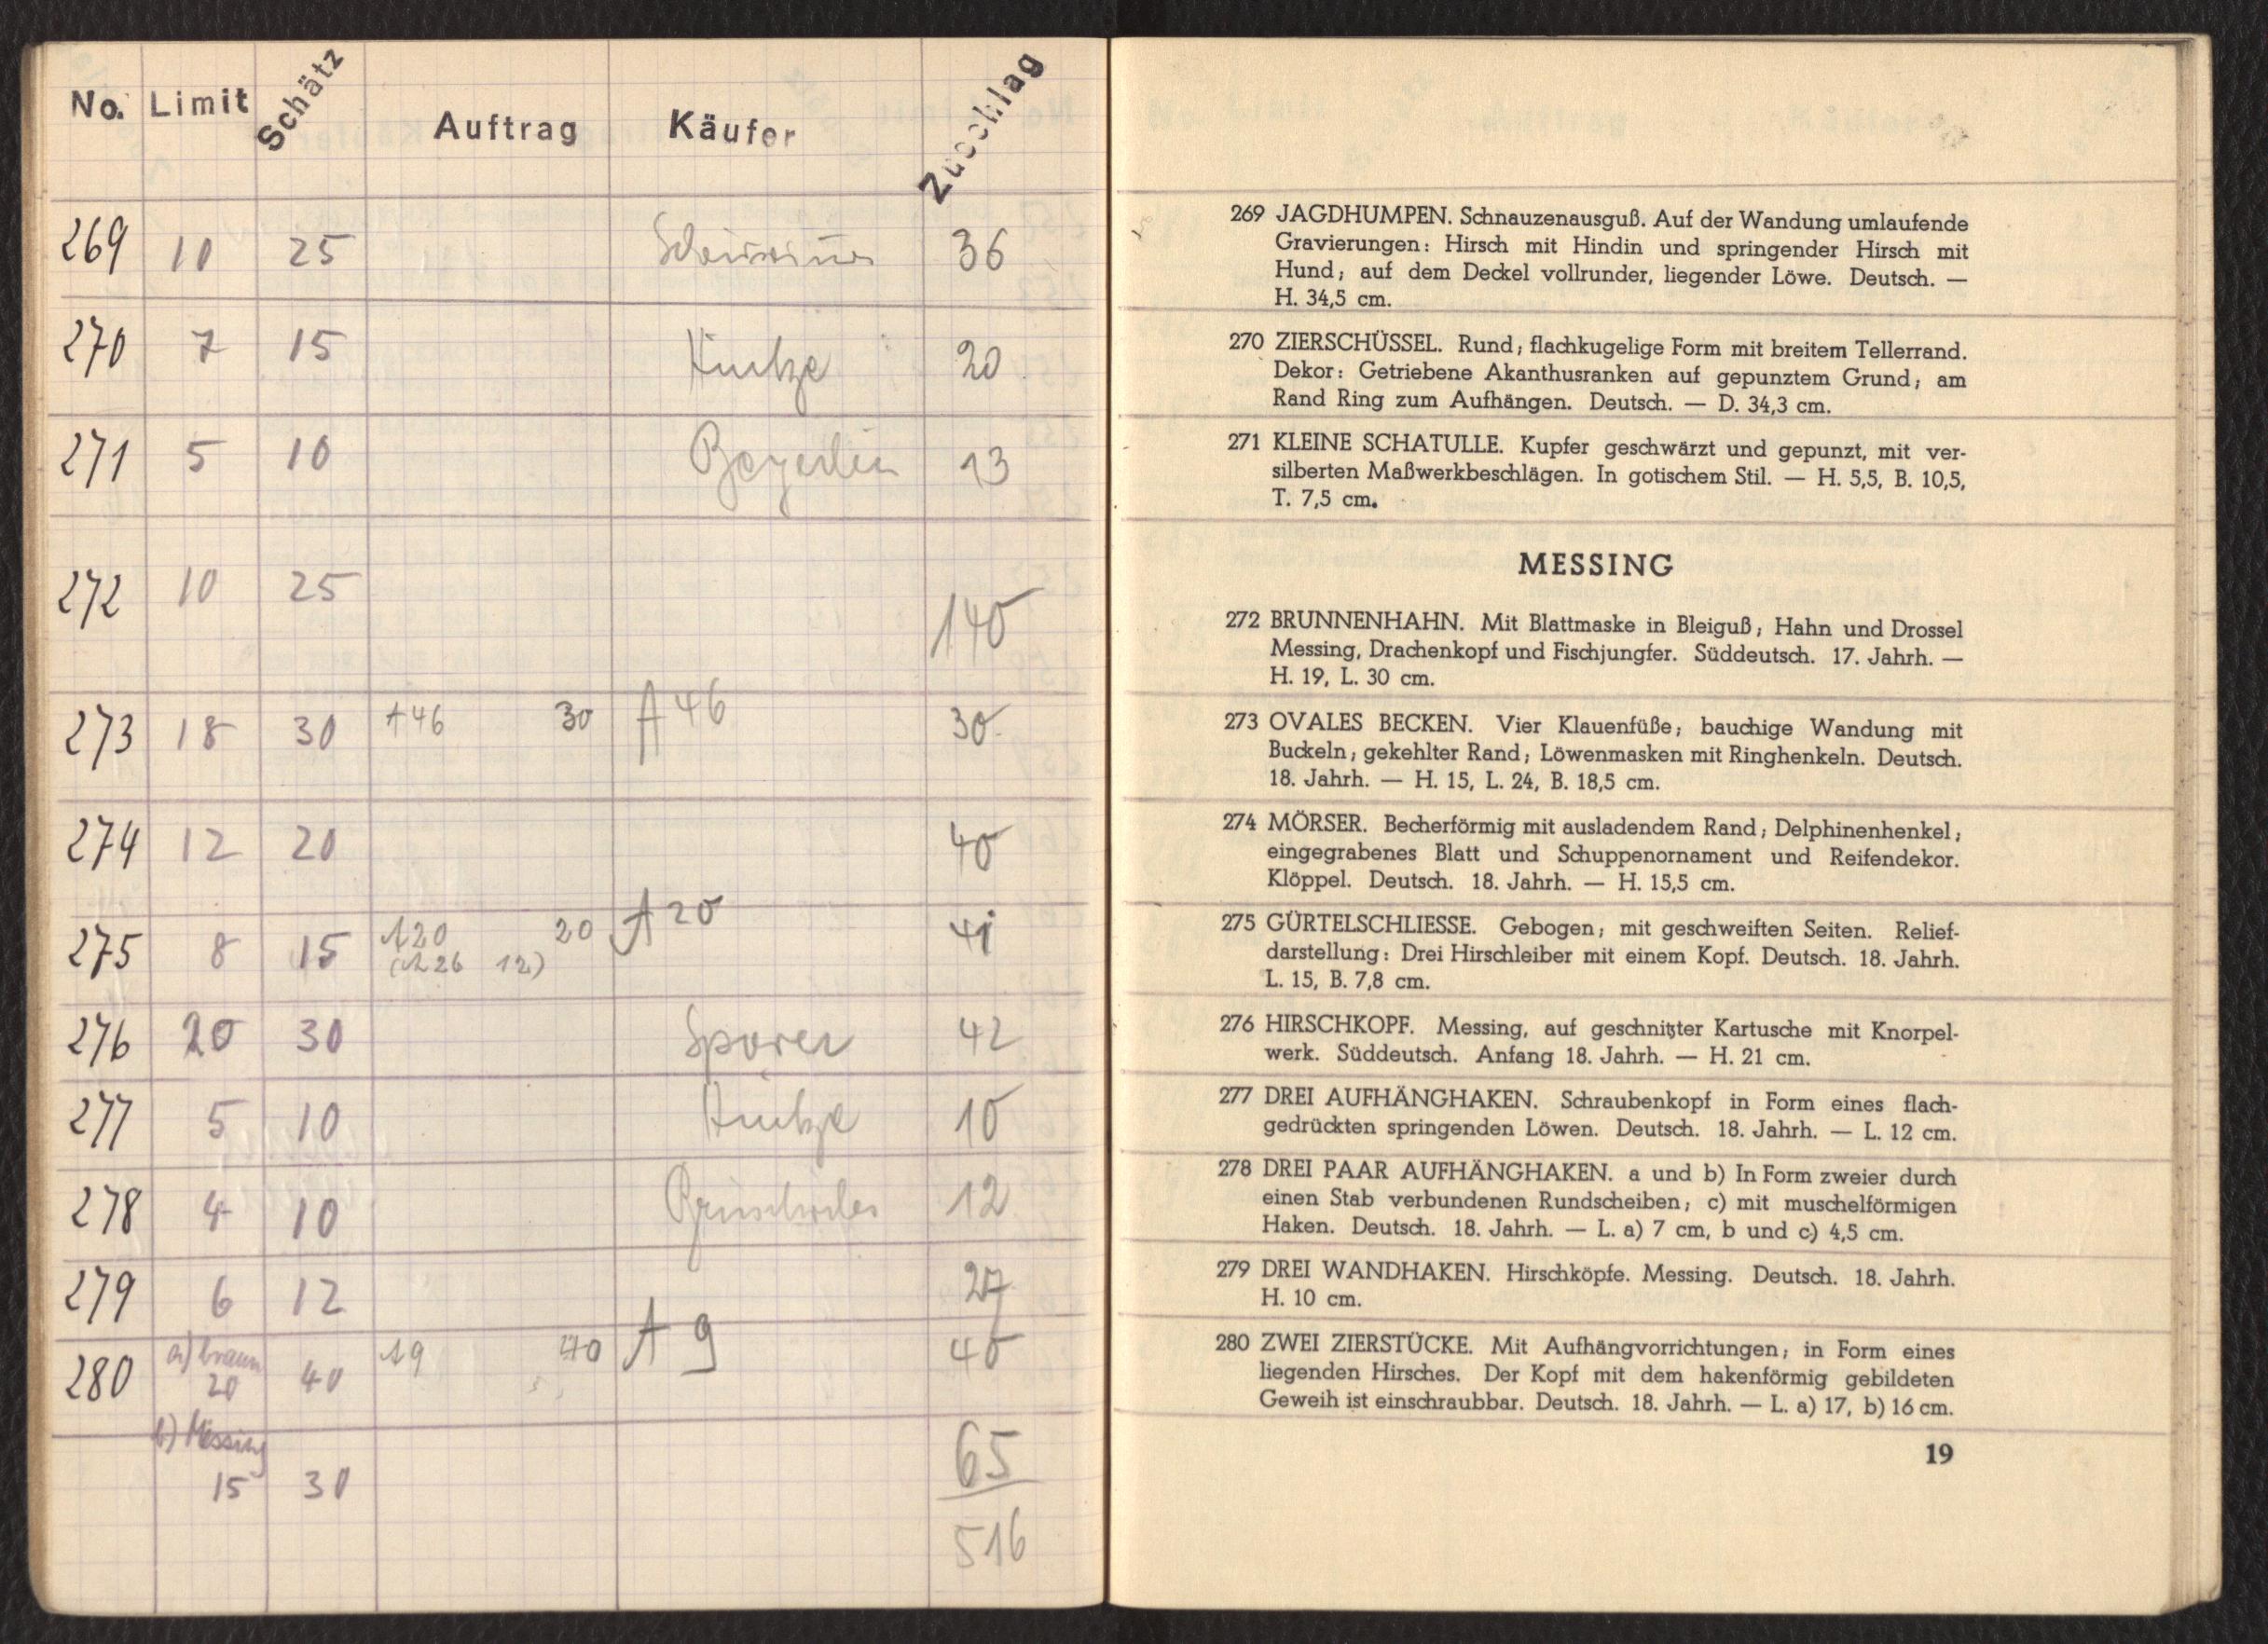 No. Limit Schätz Auftrag Käufer Zuschlag
269 10 25 36
270 7 15 Hintze 20
271 5 10 Beyerlein 13
272 10 25 140
273 18 30 A46 30 A 46 30
274 12 20 40
275 8 15 A20 20 A 20 41
(A 26 12)
276 20 30 Sporer 42
277 5 10 Hintze 10
278 4 10 12
279 6 12 27
280 a) braun 20 40 A9 40 A 9 40
b) Messing
15 30 65
516
269 JAGDHUMPEN. Schnauzenausguß. Auf der Wandung umlaufende
Gravierungen: Hirsch mit Hindin und springender Hirsch mit
Hund; auf dem Deckel vollrunder, liegender Löwe. Deutsch. —
H. 34,5 cm.
270 ZIERSCHÜSSEL. Rund; flachkugelige Form mit breitem Tellerrand.
Dekor: Getriebene Akanthusranken auf gepunztem Grund; am
Rand Ring zum Aufhängen. Deutsch. — D. 34,3 cm.
271 KLEINE SCHATULLE. Kupfer geschwärzt und gepunzt, mit ver-
silberten Maßwerkbeschlägen. In gotischem Stil. — H. 5,5, B. 10,5,
T. 7,5 cm.
MESSING
272 BRUNNENHAHN. Mit Blattmaske in Bleiguß; Hahn und Drossel
Messing, Drachenkopf und Fischjungfer. Süddeutsch. 17. Jahrh. —
H. 19, L. 30 cm.
273 OVALES BECKEN. Vier Klauenfüße; bauchige Wandung mit
Buckeln; gekehlter Rand; Löwenmasken mit Ringhenkeln. Deutsch.
18. Jahrh. — H. 15, L. 24, B. 18,5 cm.
274 MÖRSER. Becherförmig mit ausladendem Rand; Delphinenhenkel;
eingegrabenes Blatt und Schuppenornament und Reifendekor.
Klöppel. Deutsch. 18. Jahrh. — H. 15,5 cm.
275 GÜRTELSCHLIESSE. Gebogen; mit geschweiften Seiten. Relief-
darstellung: Drei Hirschleiber mit einem Kopf. Deutsch. 18. Jahrh.
L. 15, B. 7,8 cm.
276 HIRSCHKOPF. Messing, auf geschnitzter Kartusche mit Knorpel-
werk. Süddeutsch. Anfang 18. Jahrh. — H. 21 cm.
277 DREI AUFHÄNGHAKEN. Schraubenkopf in Form eines flach-
gedrückten springenden Löwen. Deutsch. 18. Jahrh. — L. 12 cm.
278 DREI PAAR AUFHÄNGHAKEN. a und b) In Form zweier durch
einen Stab verbundenen Rundscheiben; c) mit muschelförmigen
Haken. Deutsch. 18. Jahrh. — L. a) 7 cm, b und c) 4,5 cm.
279 DREI WANDHAKEN. Hirschköpfe. Messing. Deutsch. 18. Jahrh.
H. 10 cm.
280 ZWEI ZIERSTÜCKE. Mit Aufhängvorrichtungen; in Form eines
liegenden Hirsches. Der Kopf mit dem hakenförmig gebildeten
Geweih ist einschraubbar. Deutsch. 18. Jahrh. — L. a) 17, b) 16 cm.
19